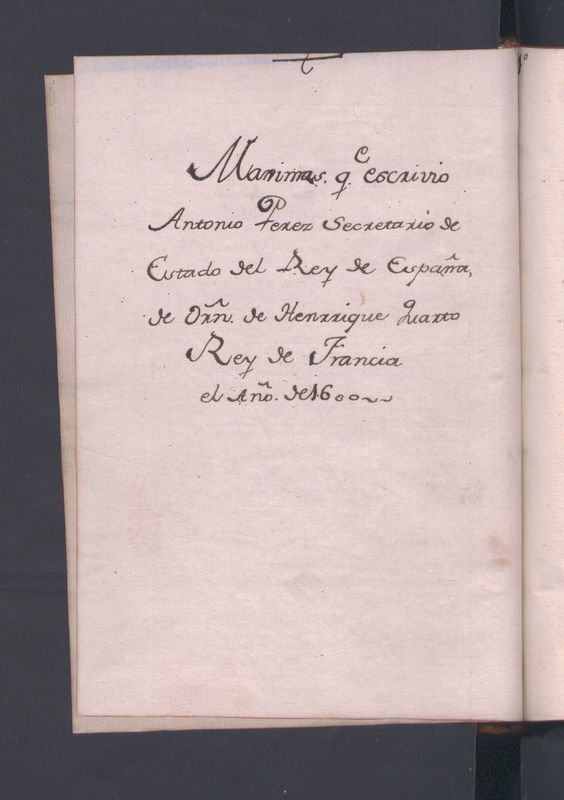 Maximas. q.e escrivio
Antonio Perez Secretario de
Estado del Rey de España,
de Orñ. de Henrrique Quarto
Rey de Francia
el Añò. de 1600